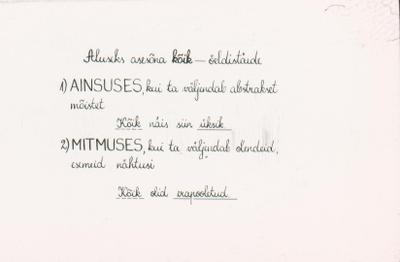 Aluseks asesõna kõik — öeldistäide
1) AINSUSES, kui ta väljendab abstraktset
mõistet
Kõik näis siin üksik
2) MITMUSES, kui ta väljendab olendeid,
esemeid nähtusi
Kõik olid erapooletud